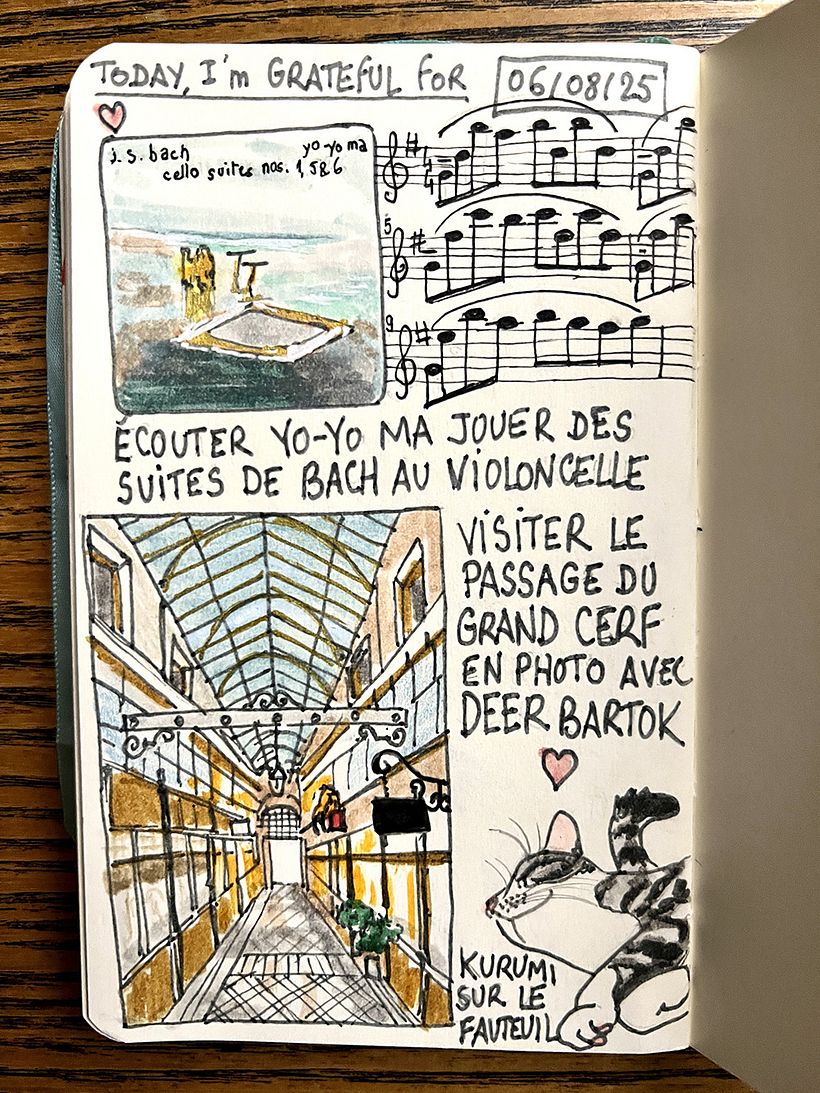 TODAY, I'm GRATEFUL FOR
06/08/25
j. s. bach
yo-yo ma
cello suites nos. 1, 5 & 6
5
9
ÉCOUTER YO-YO MA JOUER DES
SUITES DE BACH AU VIOLONCELLE
VISITER LE
PASSAGE DU
GRAND CERF
EN PHOTO AVEC
DEER BARTOK
KURUMI
SUR LE
FAUTEUIL